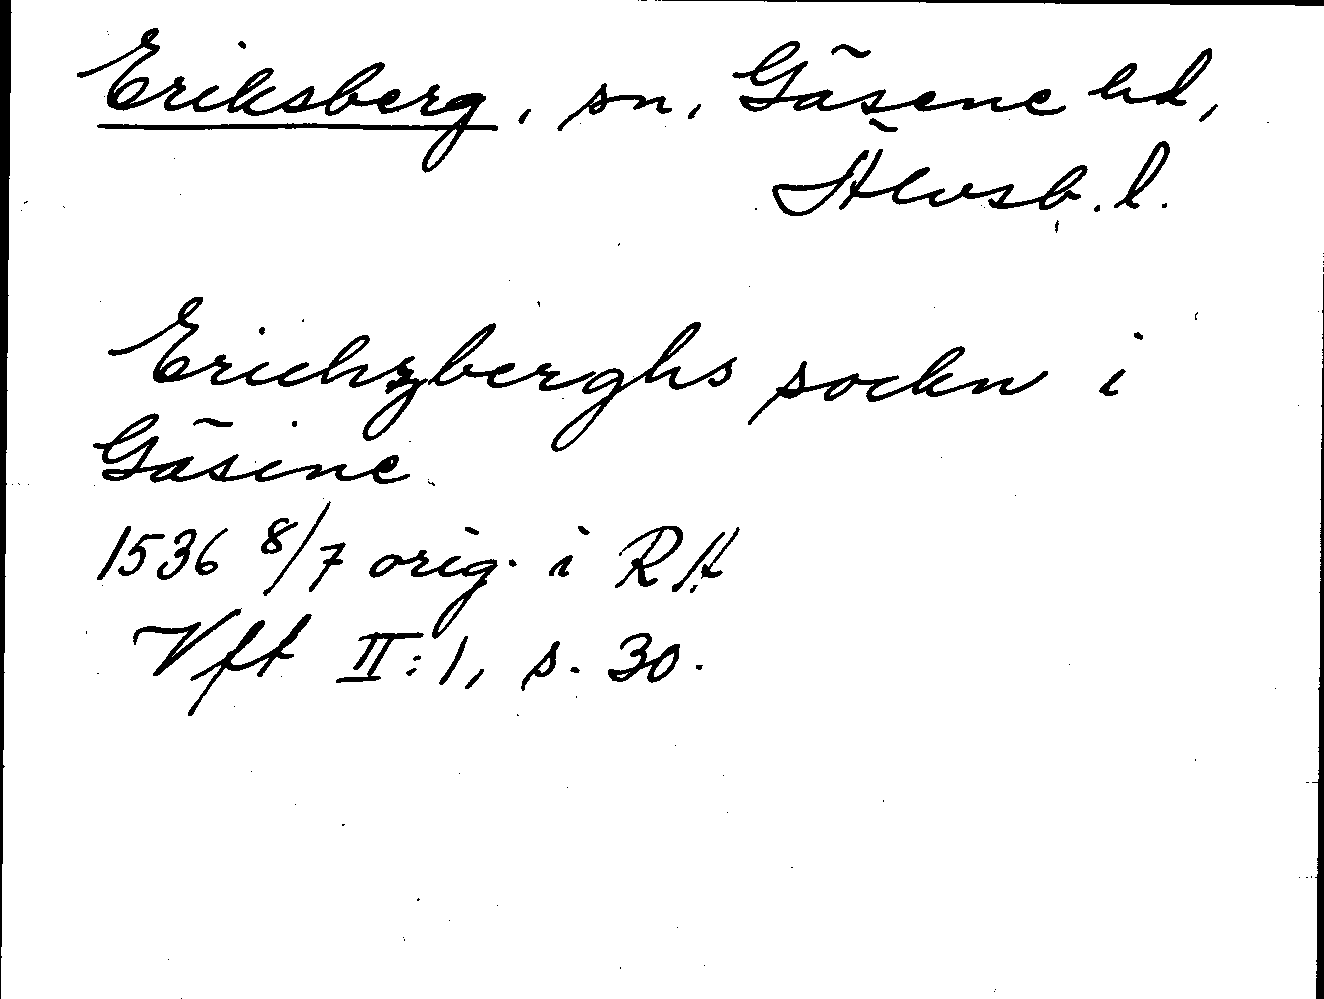 Eriksberg, sn, Gäsene hd,
Älvsb. l.
Erichzberghs sockn i
Gäsine
1536 8/7 orig. i RA
Vft II:1, s. 30.